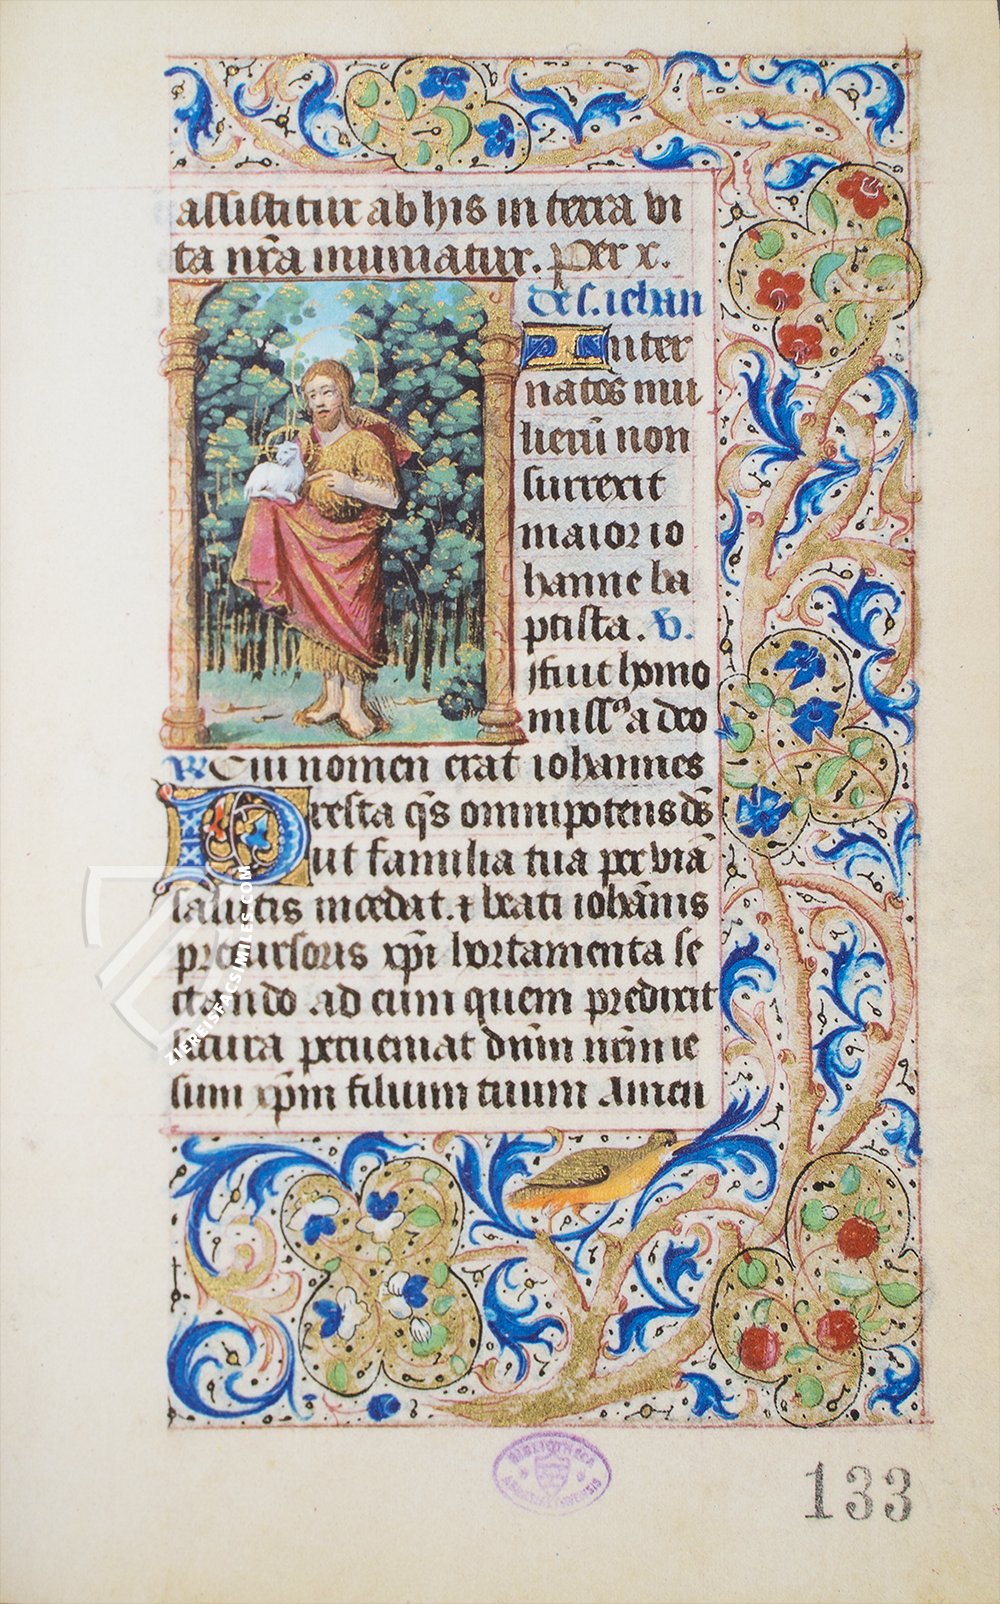 assistitur ab his in terra vi
ta nr̄a muniatur. Per x.
de s. iehan
Inter
natos mu
lierū non
surrexit
maior io
hanne ba
ptista. V.
ffuit homo
miss⁹ a deo
R Cui nomen erat iohannes
Presta q̄s omnipotens ds̄
ut familia tua per viā
salutis incedat. et beati iohānis
precursoris xp̄i hortamenta se
ctando ad eum quem predixit
secura perveniat dn̄m nr̄m ie
sum xp̄m filium tuum Amen
ZIEREISFACSIMILES.COM
BIBLIOTHECA
133